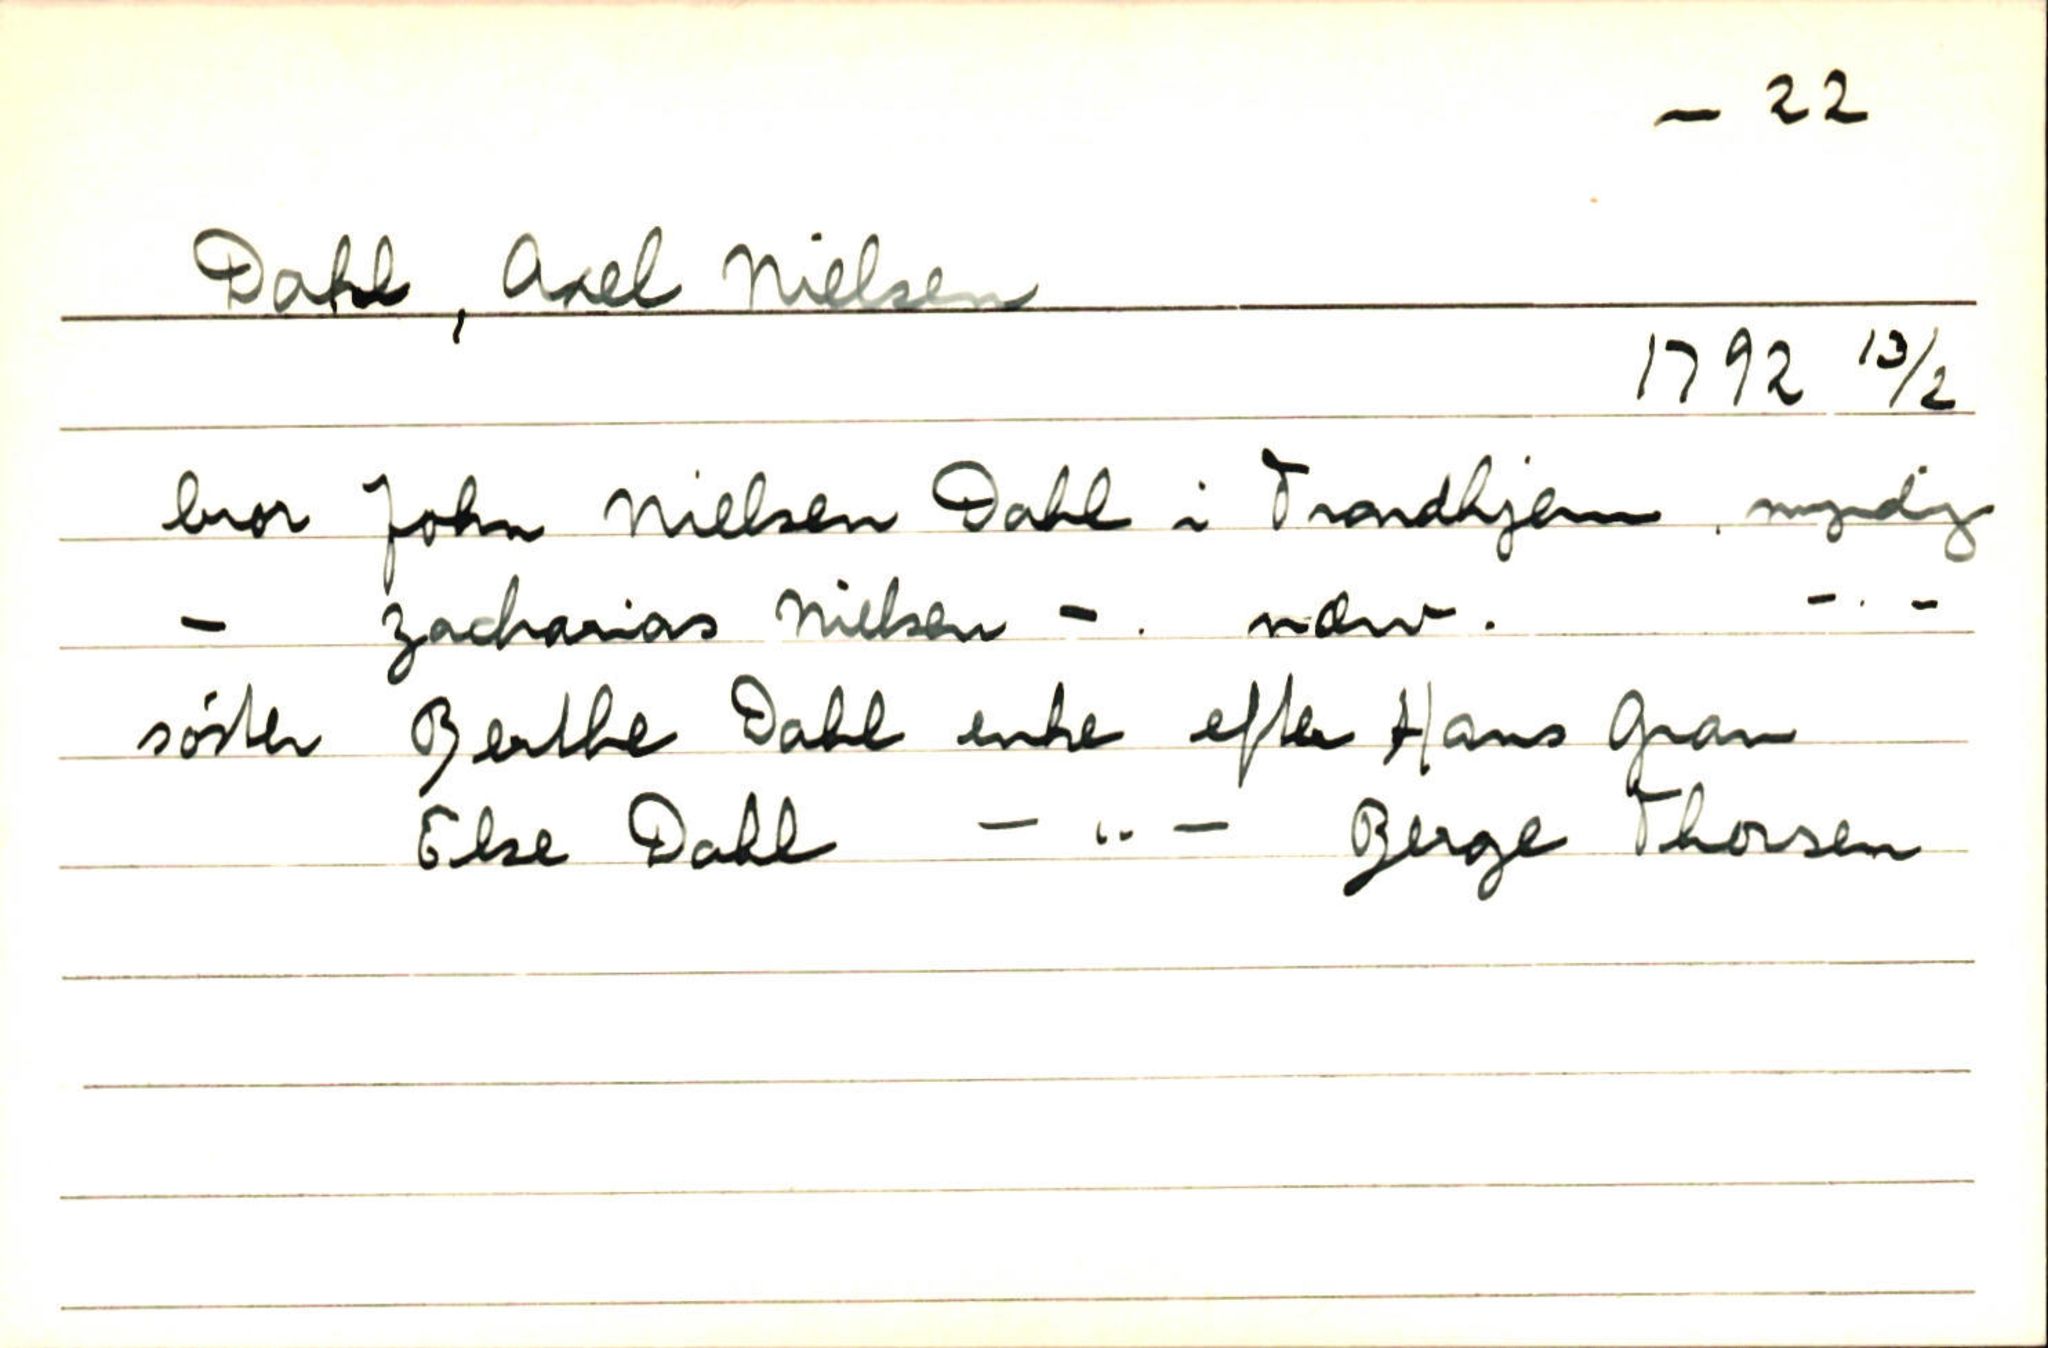 - 22
Dahl, Axel Nielsen
1792 13/2
bror John Nielsen Dahl i Trondhjem. myndig
- Zacharias Nielsen -. nærv. - . -
söster Berthe Dahl enke efter Hans Gran
Else Dahl - " - Berge Thorsen